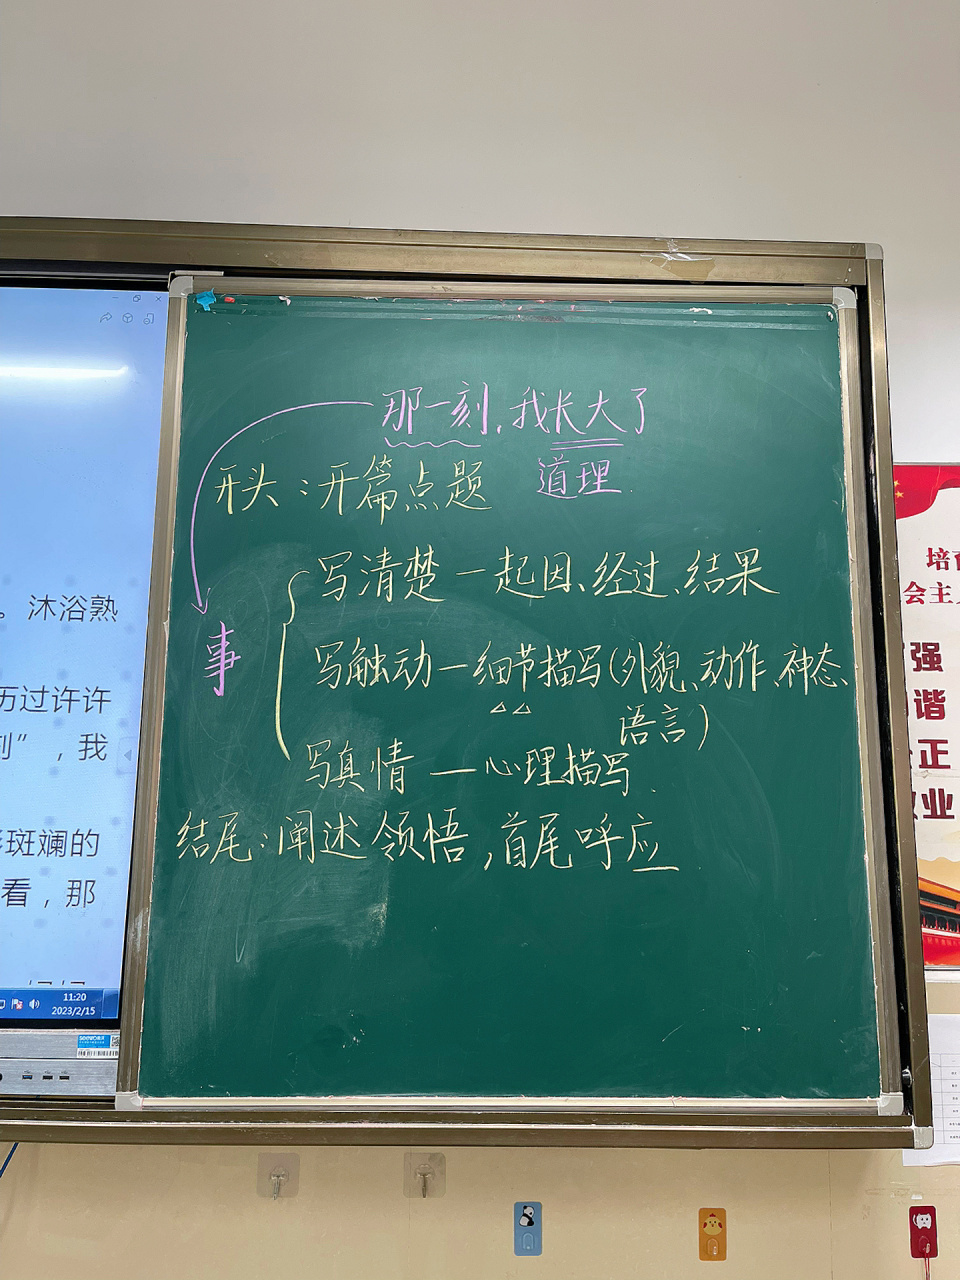 那一刻,我长大了
道理
开头:开篇点题
事
写清楚—起因、经过、结果
写触动—细节描写(外貌、动作、神态、
语言)
写真情—心理描写
结尾:阐述领悟,首尾呼应
。沐浴熟
历过许许
刻”,我
斑斓的
看,那
11:20
2023/2/15
seewo
培育
会主义
强
谐
正
业